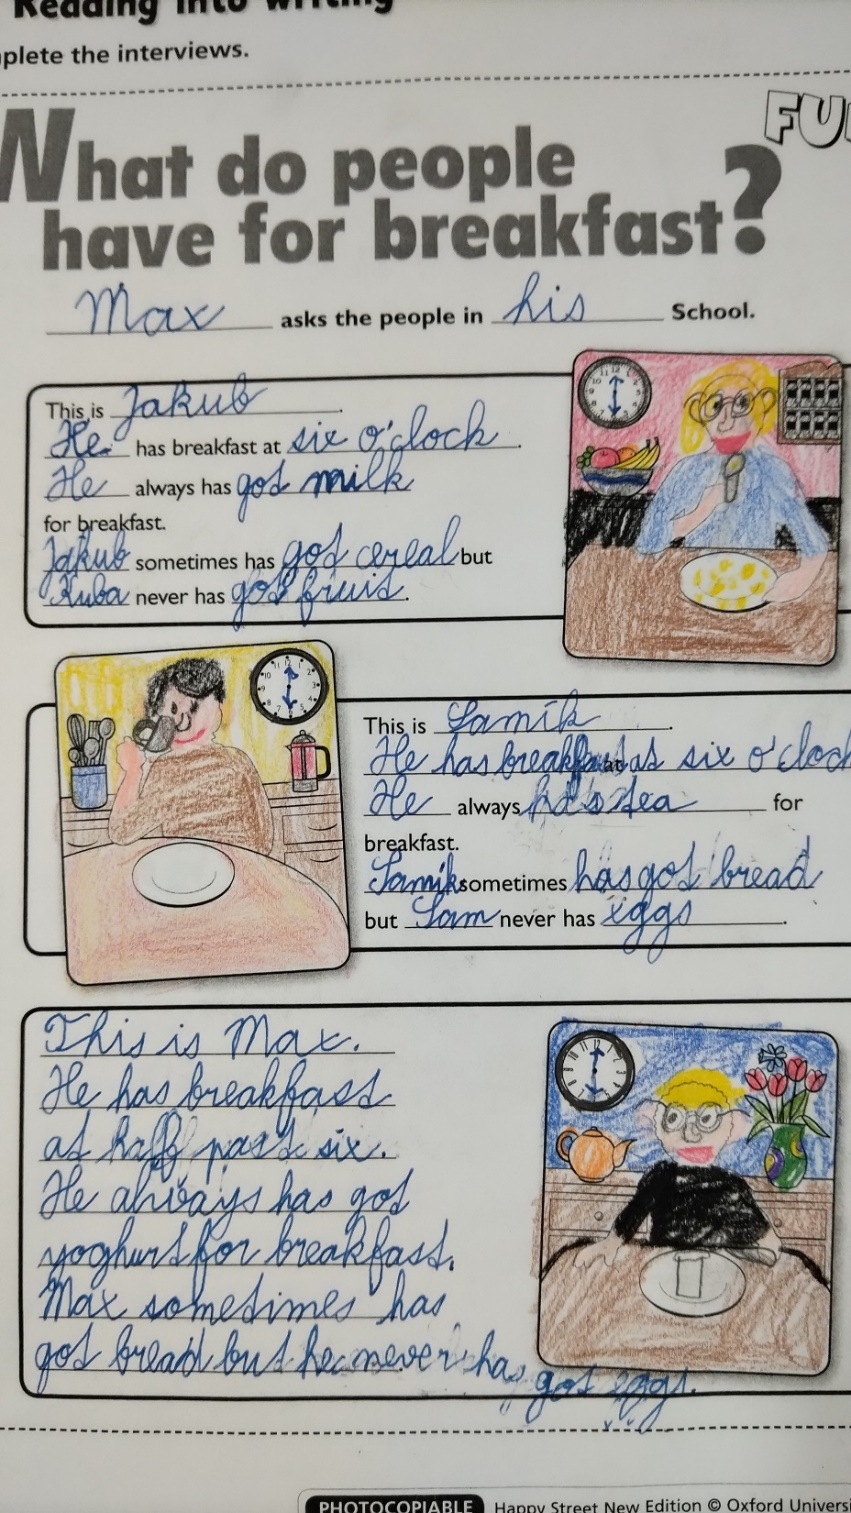 Reading into writing
plete the interviews.
FU
What do people
have for breakfast?
Max asks the people in his School.
This is Jakub.
He has breakfast at six o'clock.
He always has got milk
for breakfast.
Jakub sometimes has got cereal but
Kuba never has got fruit.
This is Samik.
He has breakfast at at six o'clock
He always has tea for
breakfast.
Samik sometimes has got bread
but Sam never has eggs.
This is Max.
He has breakfast
at half past six.
He always has got
yoghurt for breakfast.
Max sometimes has
got bread but he never has got eggs.
PHOTOCOPIABLE Happy Street New Edition © Oxford Universi